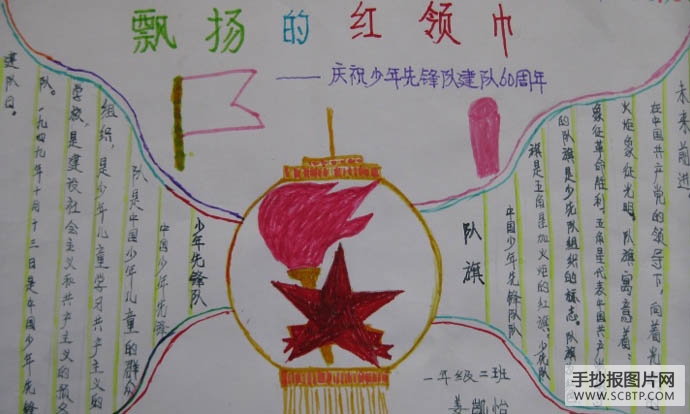 飘扬的红领巾
——庆祝少年先锋队建队60周年
少年先锋队
中国少年先锋
队是中国少年儿童的群众
组织,是少年儿童学习共产主义的
学校,是建设社会主义和共产主义的预备
队。一九四九年十月十三日是中国少年先锋
建队日。
队旗
中国少年先锋队队
旗是五角星加火炬的红旗。少先队
的队旗是少先队组织的标志。队旗
象征革命胜利五角星是代表中国共产
火炬象征光明。队旗寓意着:
在中国共产党的领导下,向着光
未来前进
一年级二班
姜凯怡
手抄报图片网
WWW.SCBTP.COM